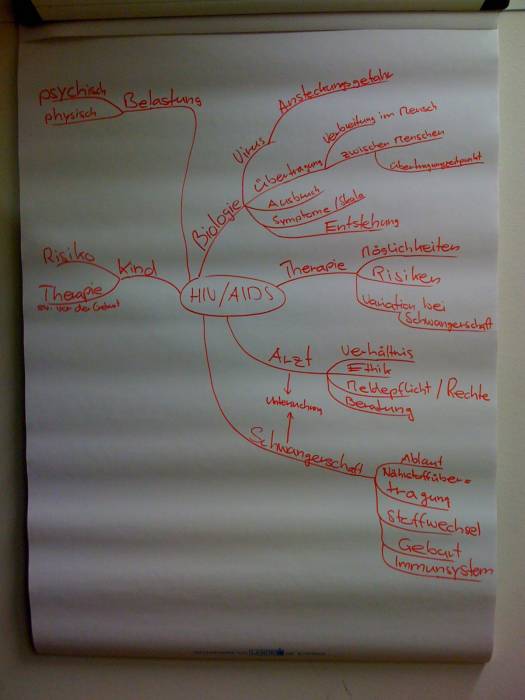 psychisch
physisch
Belastung
Ansteckungsgefahr
Virus
Verbreitung im Mensch
Übertragung
zwischen Menschen
Übertragungszeitpunkt
Ausbruch
Symptome/Skala
Entstehung
Biologie
Risiko
Kind
Therapie
evt. vor der Geburt
HIV/AIDS
Therapie
Möglichkeiten
Risiken
Variation bei
Schwangerschaft
Arzt
Verhältnis
Ethik
Meldepflicht/Rechte
Beratung
Untersuchung
Schwangerschaft
Ablauf
Nährstoffüber-
tragung
Stoffwechsel
Geburt
Immunsystem